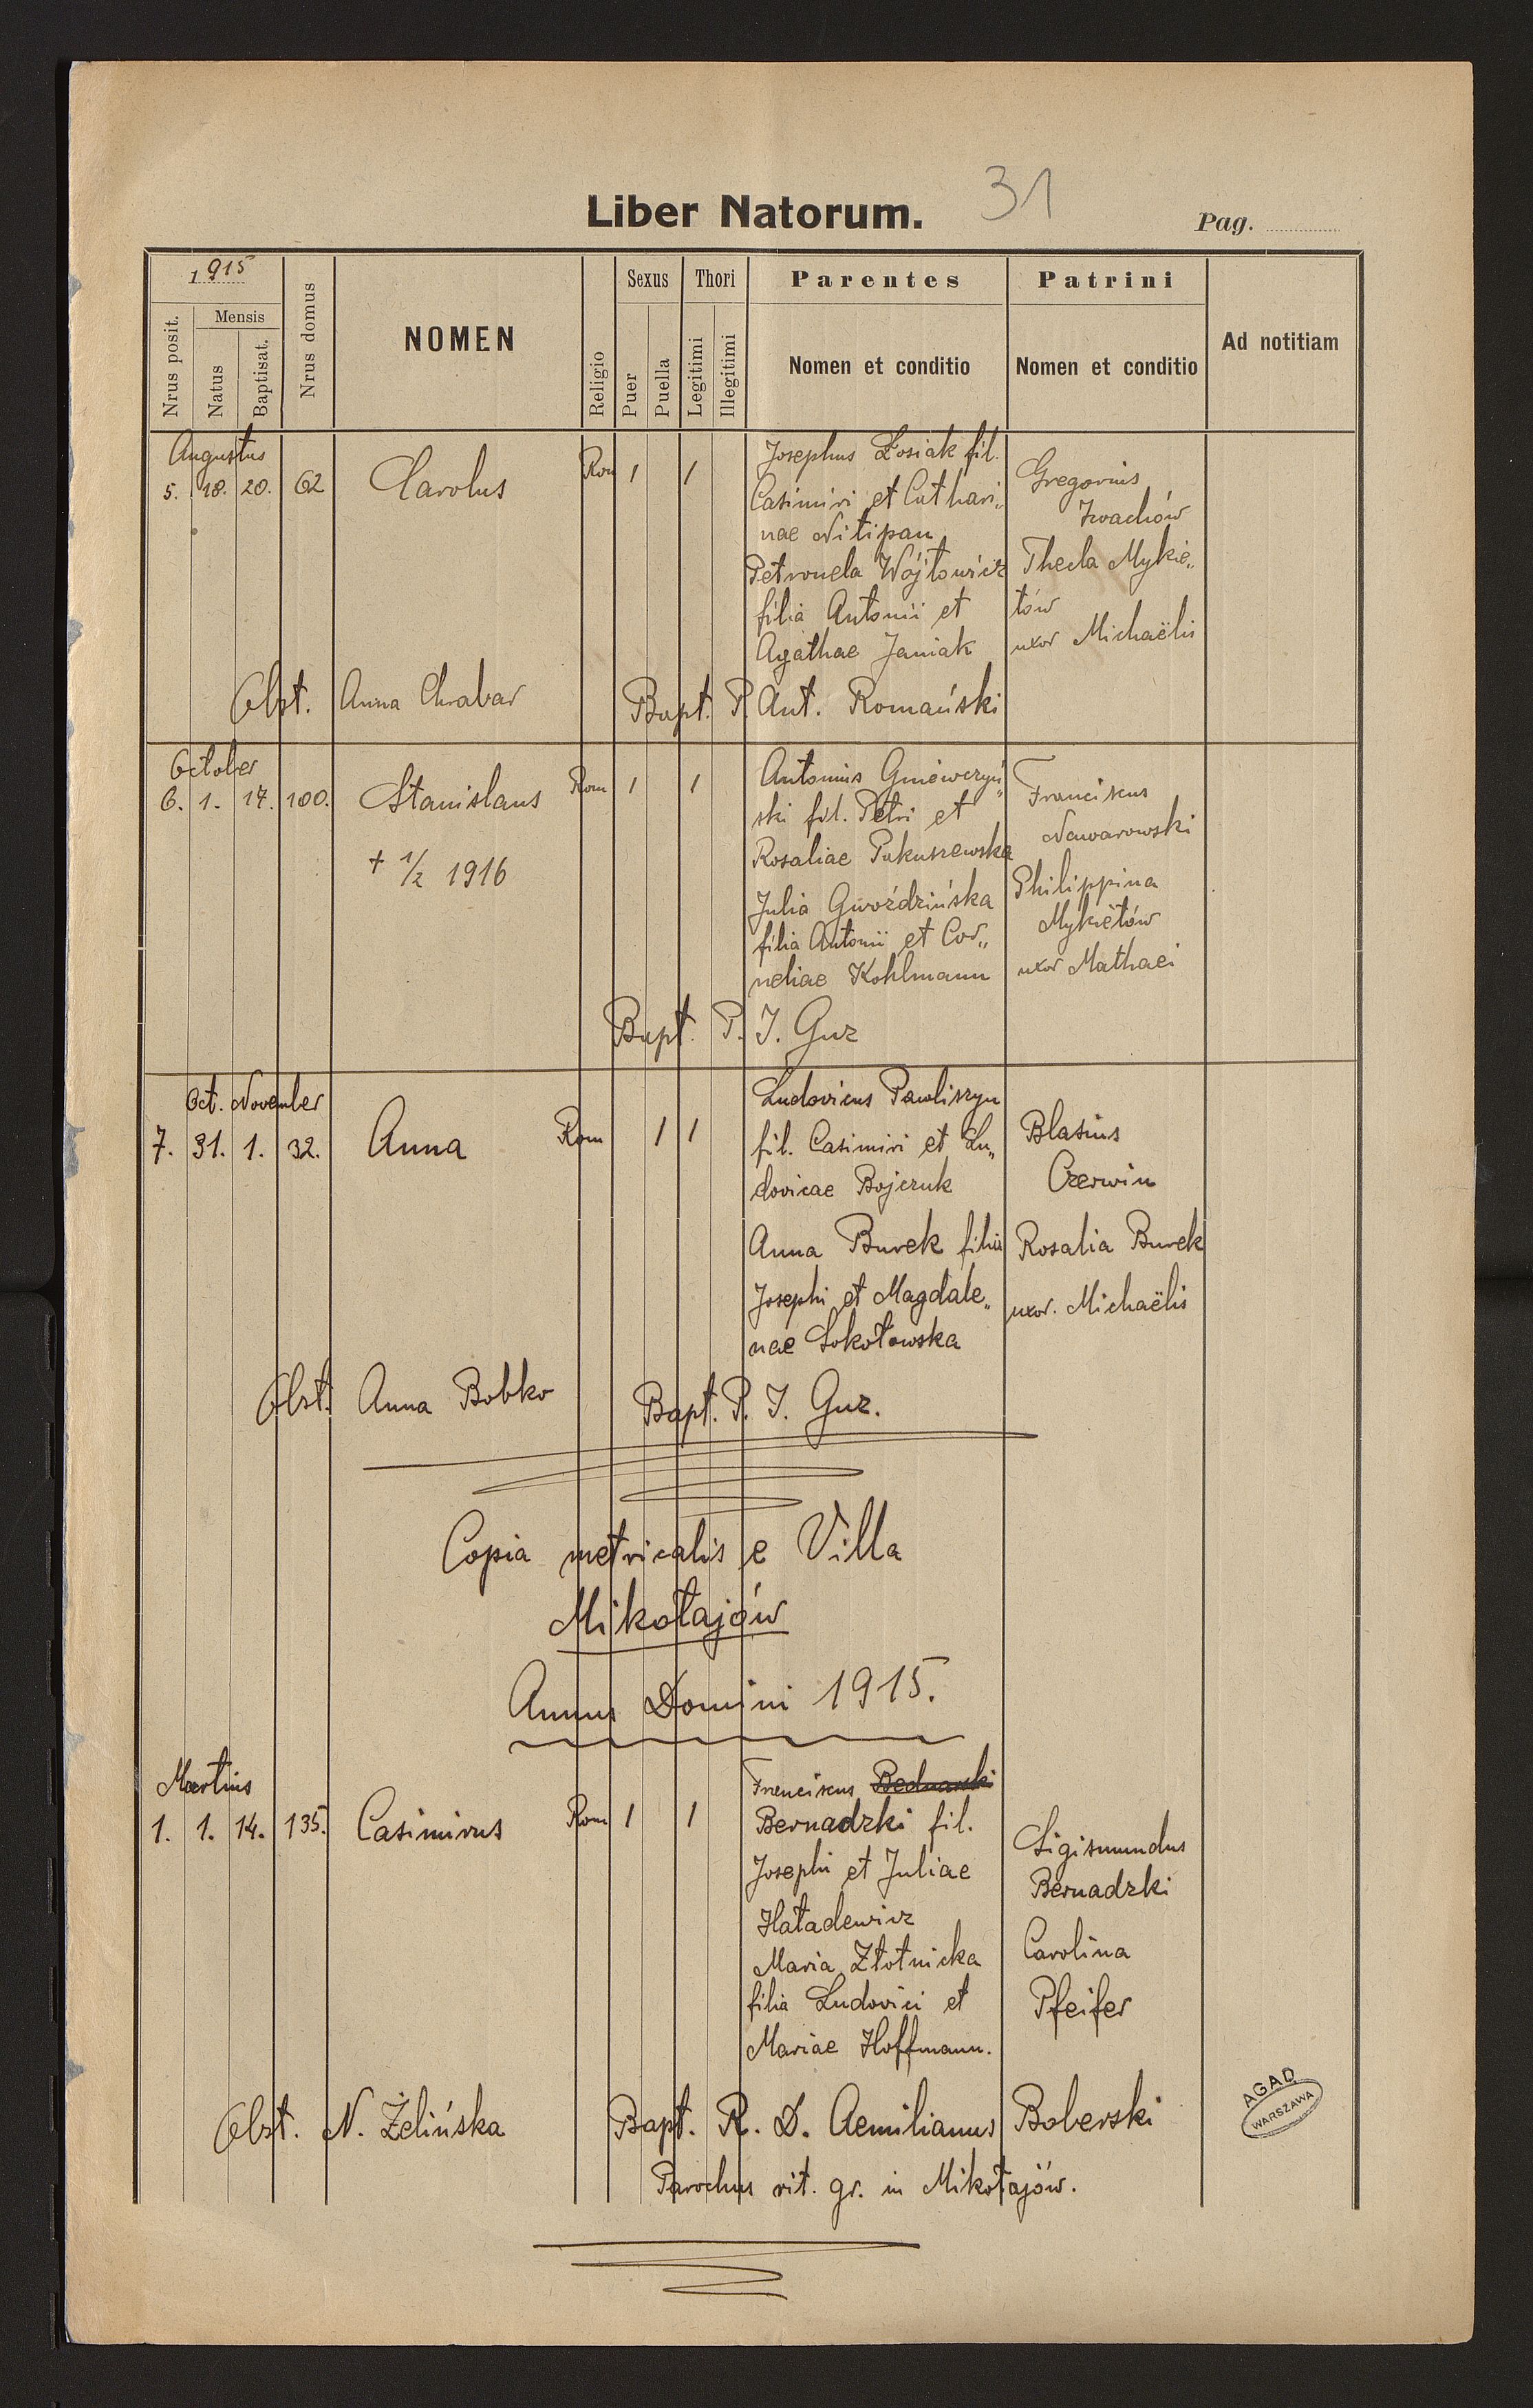 Liber Natorum. 31 Pag.
1915
Nrus posit.
Mensis
Natus
Baptisat.
Nrus domus
NOMEN
Religio
Sexus
Puer
Puella
Thori
Legitimi
Illegitimi
Parentes
Nomen et conditio
Patrini
Nomen et conditio
Ad notitiam
Augustus
5. 18. 20. 62 Carolus Rom 1 1
Josephus Łosiak fil.
Casimiri et Cathari„
nae Nitipan
Petronela Wójtowicz
filia Antonii et
Agathae Janiak
Gregorius
Iwachów
Thecla Mykie„
tów
uxor Michaëlis
Obst. Anna Chrabar Bapt. P. Ant. Romański
October
6. 1. 17. 100. Stanislaus Rom 1 1
+ 1/2 1916
Antonius Gniewczyń„
ski fil. Petri et
Rosaliae Pukuszewska
Julia Gwoździńska
filia Antonii et Cor„
neliae Kohlmann
Franciscus
Nawarowski
Philippina
Mykietów
uxor Mathaei
Bapt. P. J. Guz
Oct. November
7. 31. 1. 32. Anna Rom 1 1
Ludovicus Pawliszyn
fil. Casimiri et Lu„
dovicae Bojczuk
Anna Burek filia
Josephi et Magdale„
nae Sokołowska
Blasius
Czerwin
Rosalia Burek
uxor. Michaëlis
Obst. Anna Bobko Bapt. P. J. Guz.
Copia metricalis e Villa
Mikołajów
Annus Domini 1915.
Martius
1. 1. 14. 135. Casimirus Rom 1 1
Franciscus Bednarski
Bernadzki fil.
Josephi et Juliae
Haładewicz
Maria Złotnicka
filia Ludovici et
Mariae Hoffmann.
Sigismundus
Bernadzki
Carolina
Pfeifer
Obst. N. Żelińska Bapt. R. D. Aemilianus Boberski
Parochus rit. gr. in Mikołajów.
AGAD
WARSZAWA